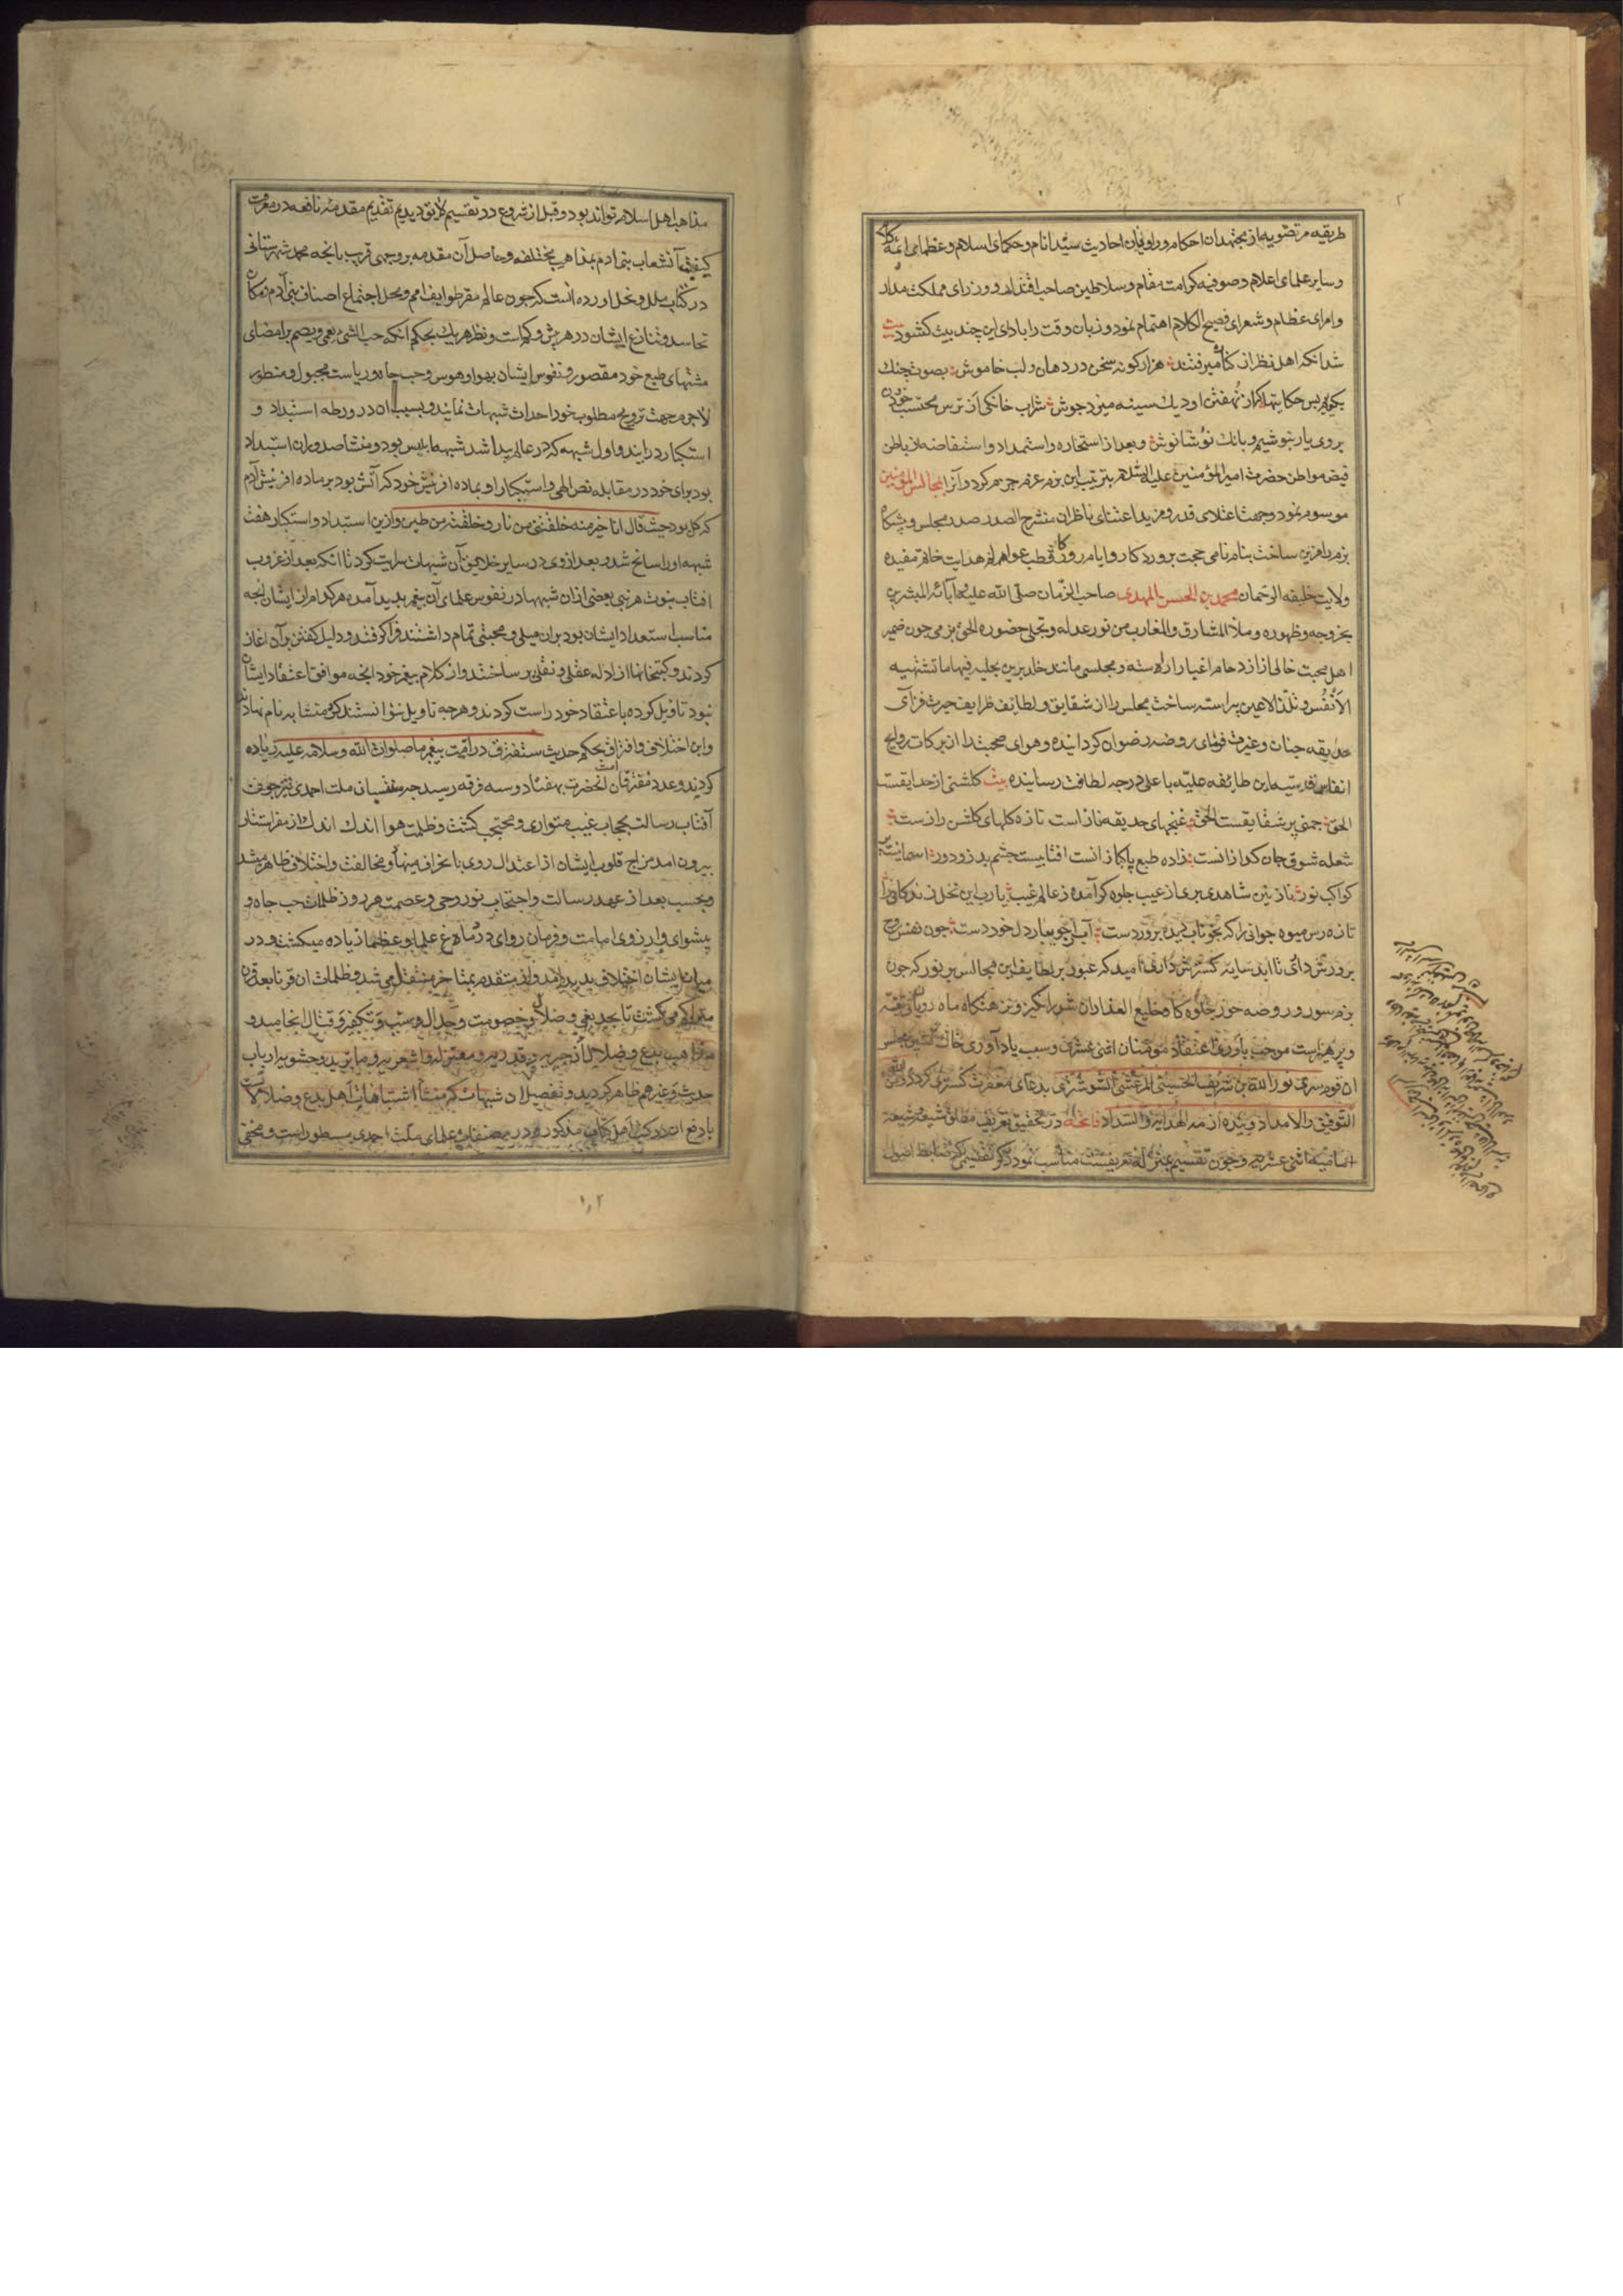 طریقه مرتضویه از مجتهدان احکام و راویان احادیث سید انام و حکمای اسلام و عظمای ائمه
و سایر علمای اعلام و صوفیه کرامت مقام و سلاطین صاحب اقتدار و وزرای مملکت مدار
و امرای عظام و شعرای فصیح الکلام اهتمام نمود و زبان وقت را بادای این چند بیت کشود بیت
شد انکه اهل نظر از کناره میرفتند هزار کونه سخن در دهان و لب خاموش بصوت چنك
بکوئیم بس حکایتها که از نهفتن او دیك سینه میزد جوش شراب خانکی از ترس محتسب خورده
بروی یار بنوشیم و بانك نوشانوش و بعد از استخاره و استمداد و استفاضه از باطن
فیض مواطن حضرت امیر المؤمنین علیه السلام بترتیب این بزم عزم جزم کرد و آنرا بمجالس المؤمنین
موسوم نمود و جهت اعلای قدر و مزید اعتنای ناظران منشرح الصدر صدر مجلس و پیشکاه
بزم را مزین ساخت بنام نامی حجت پروردکار و ایام روزکار قطب عوالم هدایت خاتم مقیده
ولایت خلیفه الرحمان محمد بن الحسن المهدی صاحب الزمان صلی الله علیه و آبائه المبشرین
بخروجه و ظهوره و ملأ المشارق و المغارب من نور عدله و تجلی حضوره الحق بزمی چون ضمیر
اهل محبت خالی از ازدحام اغیار اراسته و مجلسی مانند خلد برین بحلیه فیها ما تشتهیه
الانفس و تلذ الاعین پیراسته ساخت مجلس را از شقایق و لطایف ظرایف حیرت فزای
حدیقه جنان و غیرت فزمای روضه رضوان کردانیده و هوای صحبتش را از برکات روایح
انفاس قدسیه این طائفه علیه با علی درجه لطافت رسانیده بیت کلشنی از حدایقست
الحق چمنی پر شقایقست الحق غنچهای حدیقه نازاست تازه کلهای کلشن رازست
شعله شوق جان کدازانست زاده طبع پاکبازانست افتابیست چشم بد زو دور اسمانیست پر
کواکب نور نازنین شاهدی بری از عیب جلوه کر آمده ز عالم غیب یا رب این نخل زندکانی را
تازه رس میوه جوانی را که بخوناب دیده پروردست آب از جویبار دل خوردست چون نفس روح
پرورش داری تا ابد سایه کسترش داری امید که عبور بر لطایف این مجالس پر نور که چون
بزم سور و روضه حور جلوه کاه خلیع العذاران شور انکیز و نزهتکاه ماه رویان توبه
و پرهیزست موجب یاوری اعتقاد مؤمنان اثنی عشری و سبب یادآوری خاك نشین مجلس
ان قوم سری نور الله بن شریف الحسینی المرعشی الشوشتری بدعای مغفرت کستری کردد و من الله
التوفیق و الامداد و بیده ازمة الهدایة و السداد فاتحه در تحقیق تعریف مطلق شیعه و شیعه
امامیه اثنی عشریه و چون تقسیم بمنزله تعریفست مناسب نمود ذکر تقسیمی که ضابط اصول
مذاهب اهل اسلام تواند بود و قبل از شروع در تقسیم لایق دیدیم تقدیم مقدمه نافعه در معرفت
کیفیت انشعاب بنی ادم بمذاهب مختلفه و حاصل آن مقدمه بر وجهی قریب بانچه محمد شهرستانی
در کتاب ملل و نحل اورده انست که چون عالم مقر طوایف امم و محل اجتماع اصناف بنی آدم و مکان
تحاسد و تنازع ایشان در هر بیش و کم است و نظر هر یك بحکم انکه حب الشی یعمی و یصم بر امضای
مشتهای طبع خود مقصور و نفوس ایشان بهوا و هوس و حب جاه و ریاست مجبول و منظور
لاجرم جهت ترویج مطلوب خود احداث شبهات نمایند و بسبب ان در ورطه استبداد و
استکبار درایند و اول شبهه که در عالم پیدا شد شبهه ابلیس بود و منشا صدور ان استبداد
بود برای خود در مقابله نص الهی و استکبار او بماده افرینش خود که آتش بود بر ماده افرینش آدم
که کل بود حیث قال انا خیر منه خلقتنی من نار و خلقته من طین و ازین استبداد و استکبار هفت
شبهه او را سانح شد و بعد از وی در سایر خلایق آن شبهات سرایت کرد تا انکه بعد از غروب
افتاب نبوت هر نبی بعضی از ان شبهها در نفوس علمای آن پیغمبر پدید آمده هر کدام از ایشان انچه
مناسب استعداد ایشان بود بران میلی و محبتی تمام داشتند فرا کرفتند و دلیل کفتن بر آن اغاز
کردند و کتبخانها از ادله عقلی و نقلی پر ساختند و از کلام پیغمبر خود انچه موافق اعتقاد ایشان
نبود تاویل کرده با عتقاد خود راست کردند و هر چه تاویل نتوانستند کرد متشابه نام نهادند
و این اختلاف و افتراق بحکم حدیث ستفترق در امت پیغمبر ما صلوات الله و سلامه علیه زیاده
کردید و عدد مفترقان امت انحضرت بهفتاد و سه فرقه رسید چه منتسبان ملت احمدی نیز چون
آفتاب رسالت بحجاب غیب متواری و محتجب کشت و ظلمت هوا اندك اندك از مقر استتار
بیرون امد مزاج قلوب ایشان از اعتدال روی بانحراف نهاد و مخالفت و اختلاف ظاهر شد
و بحسب بعد از عهد رسالت و احتجاب نور وحی و عصمت هر روز ظلمات حب جاه و
پیشوای و ارزوی امامت و فرمان روای در دماغ علما و عظما زیاده میکشت و در
میان ایشان اختلاف پدید آمد و از متقدم بمتاخر منتقل می شد و ظلمات ان قرنا بعد قرن
متراکم می کشت تا بحد بغی و ضلال و خصومت و جدال و سب و تکفیر و قتال انجامید و
مذاهب بدع و ضلال از جبریه و قدریه و معتزله و اشعریه و ماتریدیه و حشویه ارباب
حدیث و غیرهم ظاهر کردید و تفصیل ان شبهات که منشأ اشتباهات اهل بدع و ضلالاتست
با دفع ان در کتب اهل کتاب مذکور و در مصنفات علمای ملت احمدی مسطور است و مخفی